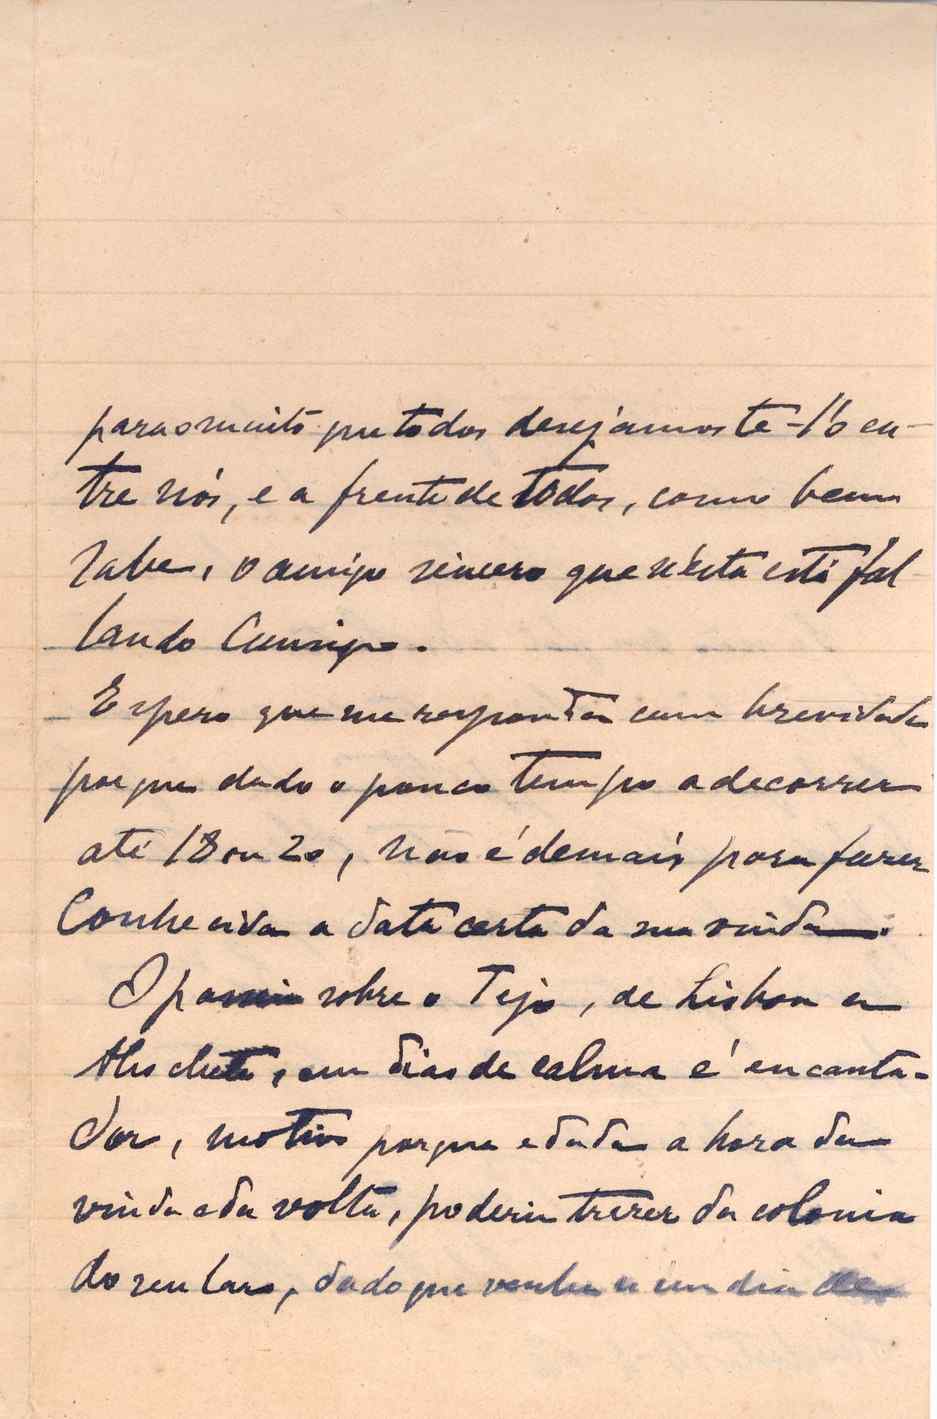 para o muito que todos desejamos te-l'o en-
tre nós, e a frente de todos, como bem
sabe, o amigo sincero que n'esta está fal
lando Comsigo.
Espero que me responda com brevidade
porque dado o pouco tempo a decorrer
até 18 ou 20, não é demais para fazer
Conhecida a data certa da sua vinda.
O passeio sobre o Tejo, de Lisboa a
Alcochete, em dias de calma é encanta-
dor, motivo porque e dada a hora da
vinda e da volta, poderia trazer da colonia
do seu lar, dado que venha n'um dia de